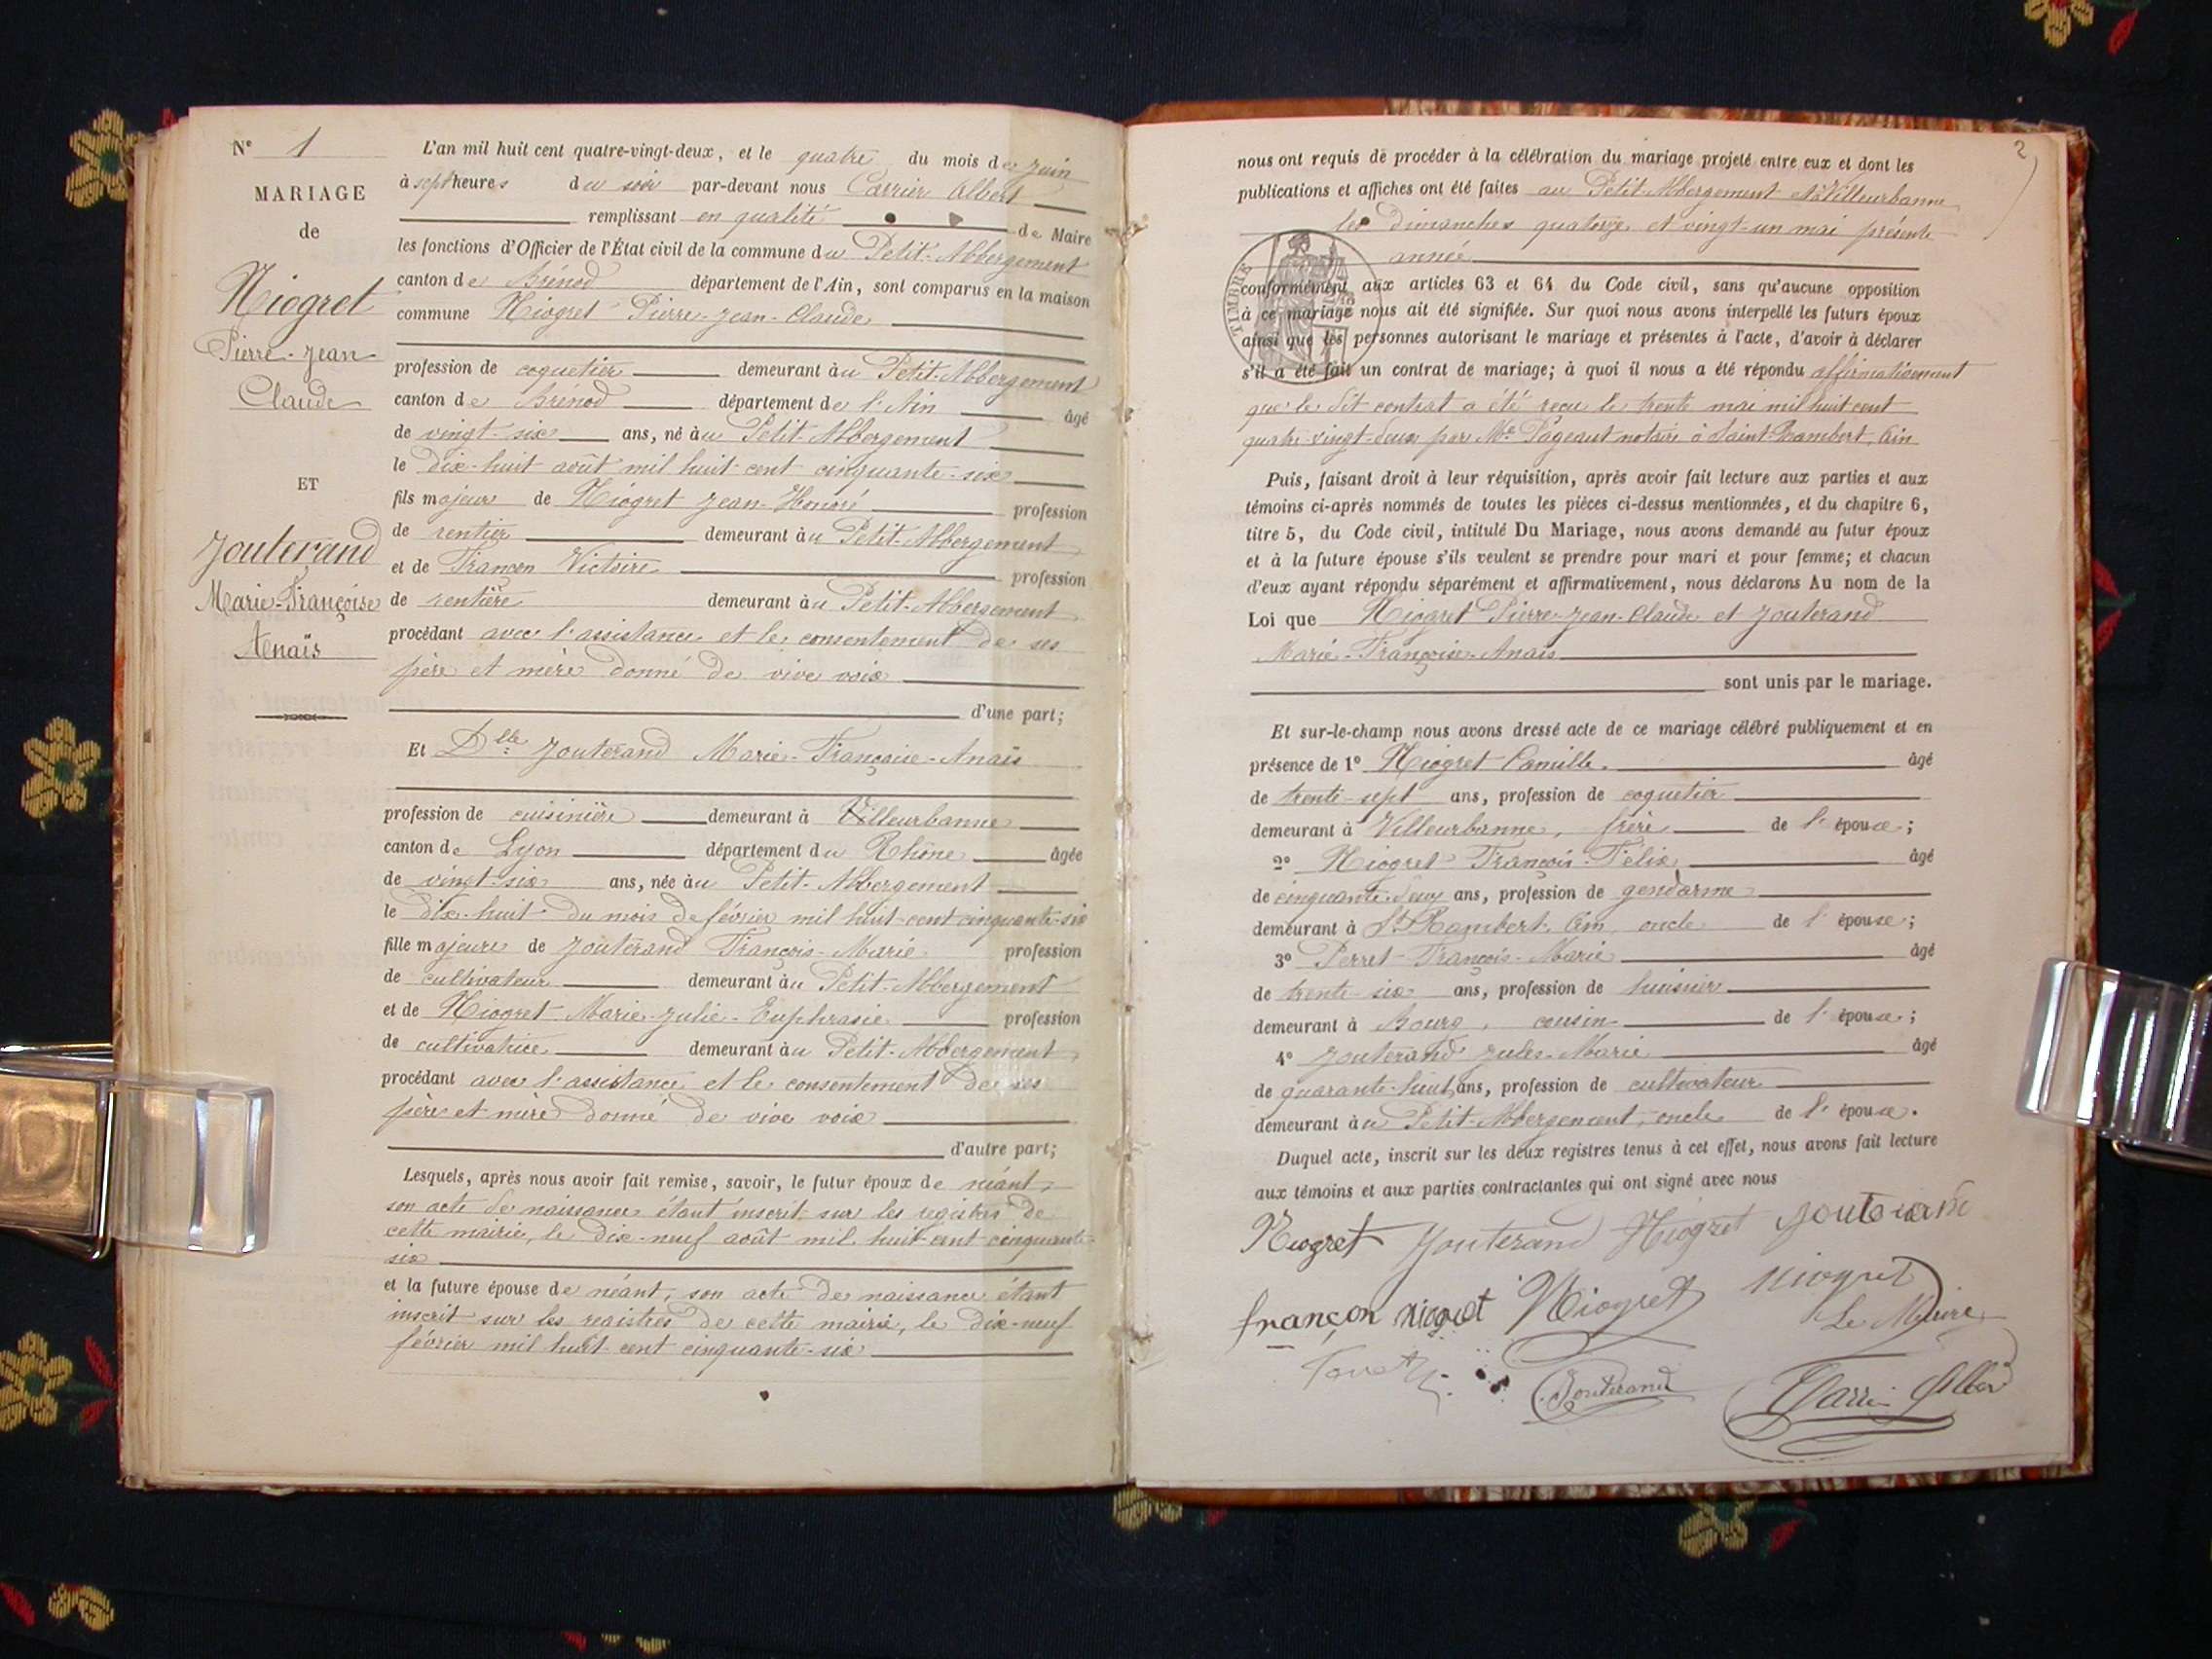 N° 1
MARIAGE
de
Niogret
Pierre-Jean
Claude
ET
Jouterand
Marie-Françoise
Anaïs
L'an mil huit cent quatre-vingt-deux, et le quatre du mois de Juin
à sept heures du soir par-devant nous Carrier Albert
remplissant en qualité de Maire
les fonctions d'Officier de l'État civil de la commune du Petit-Abbergement
canton de Brénod département de l'Ain, sont comparus en la maison
commune Niogret Pierre-Jean-Claude
profession de coquetier demeurant au Petit-Abbergement
canton de Brénod département de l'Ain âgé
de vingt-six ans, né au Petit-Abbergement
le dix-huit août mil huit cent cinquante-six
fils majeur de Niogret Jean-Honoré profession
de rentier demeurant au Petit-Abbergement
et de Françon Victoire profession
de rentière demeurant au Petit-Abbergement
procédant avec l'assistance et le consentement de ses
père et mère donné de vive voix
d'une part;
Et Dlle Jouterand Marie-Françoise-Anaïs
profession de cuisinière demeurant à Villeurbanne
canton de Lyon département du Rhône âgée
de vingt-six ans, née au Petit-Abbergement
le dix-huit du mois de février mil huit-cent cinquante-six
fille majeure de Jouterand François-Marie profession
de cultivateur demeurant au Petit-Abbergement
et de Niogret Marie-Julie-Euphrasie profession
de cultivatrice demeurant au Petit-Abbergement
procédant avec l'assistance et le consentement de ses
père et mère donné de vive voix
d'autre part;
Lesquels, après nous avoir fait remise, savoir, le futur époux de néant,
son acte de naissance étant inscrit sur les registres de
cette mairie, le dix-neuf août mil huit cent cinquante-
six
et la future épouse de néant, son acte de naissance étant
inscrit sur les registres de cette mairie, le dix-neuf
février mil huit cent cinquante-six
2
nous ont requis de procéder à la célébration du mariage projeté entre eux et dont les
publications et affiches ont été faites au Petit-Abbergement et à Villeurbanne
les dimanches quatorze et vingt-un mai présente
année
TIMBRE
conformément aux articles 63 et 64 du Code civil, sans qu'aucune opposition
à ce mariage nous ait été signifiée. Sur quoi nous avons interpellé les futurs époux
ainsi que les personnes autorisant le mariage et présentes à l'acte, d'avoir à déclarer
s'il a été fait un contrat de mariage; à quoi il nous a été répondu affirmativement
que le dit contrat a été reçu le trente mai mil huit cent
quatre-vingt-deux par Me Pageaut notaire à Saint-Rambert, Ain
Puis, faisant droit à leur réquisition, après avoir fait lecture aux parties et aux
témoins ci-après nommés de toutes les pièces ci-dessus mentionnées, et du chapitre 6,
titre 5, du Code civil, intitulé Du Mariage, nous avons demandé au futur époux
et à la future épouse s'ils veulent se prendre pour mari et pour femme; et chacun
d'eux ayant répondu séparément et affirmativement, nous déclarons Au nom de la
Loi que Niogret Pierre-Jean-Claude et Jouterand
Marie-Françoise-Anaïs
sont unis par le mariage.
Et sur-le-champ nous avons dressé acte de ce mariage célébré publiquement et en
présence de 1° Niogret Camille. âgé
de trente-sept ans, profession de coquetier
demeurant à Villeurbanne, frère de l'époux;
2° Niogret François-Félix âgé
de cinquante-deux ans, profession de gendarme
demeurant à St Rambert, Ain, oncle de l'épouse;
3° Perret François-Marie âgé
de trente-six ans, profession de huissier
demeurant à Bourg, cousin de l'épouse;
4° Jouterand Jules-Marie âgé
de quarante-huit ans, profession de cultivateur
demeurant au Petit-Abbergement, oncle de l'épouse.
Duquel acte, inscrit sur les deux registres tenus à cet effet, nous avons fait lecture
aux témoins et aux parties contractantes qui ont signé avec nous
Niogret Jouterand Niogret Jouterand
françon niogret Niogret niogret
Le Maire
Jouterand
Carrier Albert